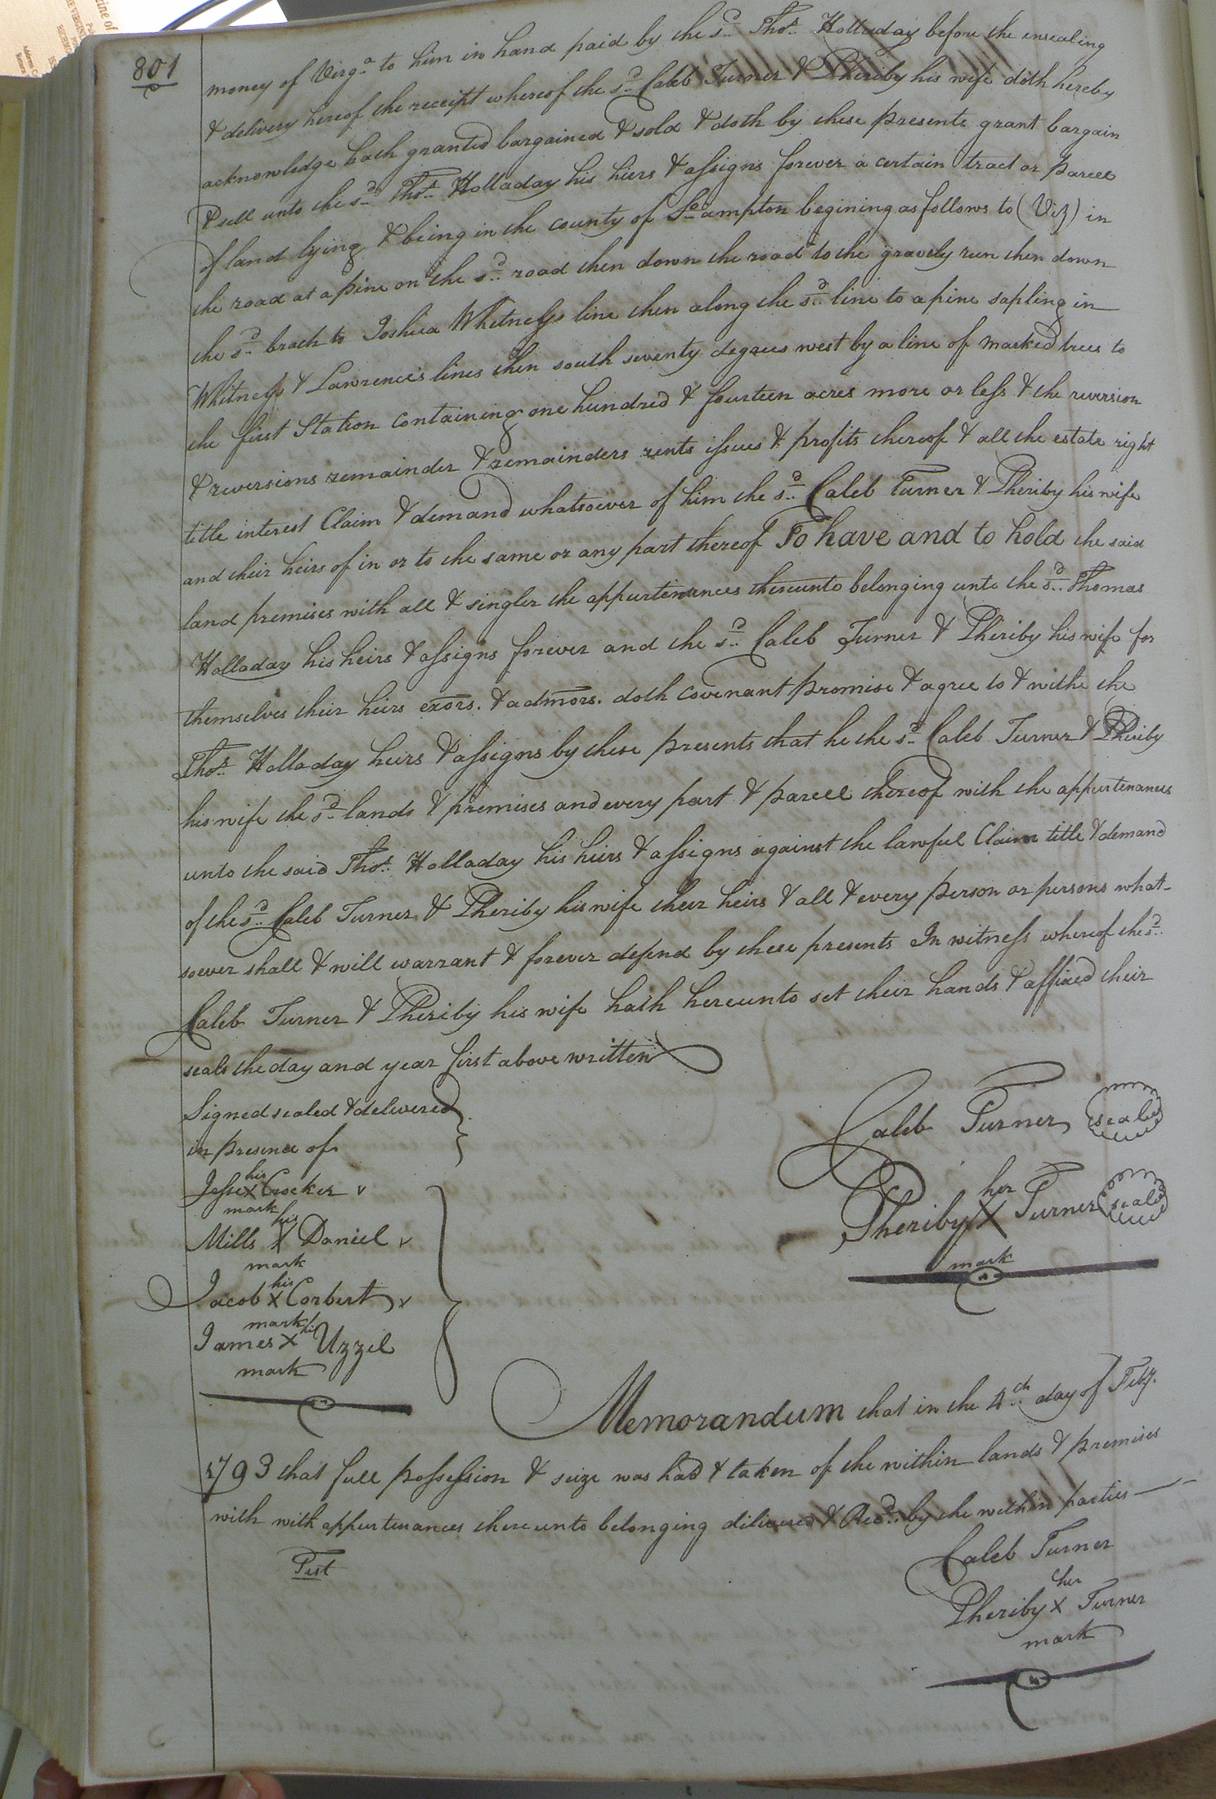 801
money of Virga. to him in hand paid by the sd. Thos. Holladay before the ensealing
& delivery hereof the receipt whereof the sd. Caleb Turner & Pheriby his wife doth hereby
acknowledge hath granted bargained & sold & doth by these presents grant bargain
& sell unto the sd. Thos. Holladay his hiers & assigns forever a certain tract or parcee
of land lying & being in the county of So.ampton begining as follows to (Viz) in
the road at a pine on the sd. road then down the road to the gravely run then down
the sd. brach to Joshua Whitneys line then along the sd. line to a pine sapling in
Whitneys & Lawrence's lines then south seventy degrees west by a line of marked trees to
the first Station Containing one hundred & fourteen acres more or less & the reversion
& reversions remainder & remainders rents issues & profits thereof & all the estate right
title interest Claim & demand whatsoever of him the sd. Caleb Turner & Pheriby his wife
and their heirs of in or to the same or any part thereof To have and to hold the said
land premises with all & singler the appurtenences thereunto belonging unto the sd. Thomas
Holladay his heirs & assigns forever and the sd. Caleb Turner & Pheriby his wife for
themselves their heirs exors. & admors. doth covenant promise & agree to & withe the
Thos. Holladay heirs & assigns by these presents that he the sd. Caleb Turner & Pheriby
his wife the sd. lands & premises and every part & parcee thereof with the appurtenances
unto the said Thos. Holladay his hiers & assigns against the lawful Claim title & demand
of the sd. Caleb Turner & Pheriby his wife their heirs & all & every person or persons what-
soever shall & will warrant & forever defend by these presents In witness whereof the sd.
Caleb Turner & Pheriby his wife hath hereunto set their hands & affixed their
seals the day and year first above written
Signed sealed & delivered
in presence of
Caleb Turner seal
her
Pheriby X Turner seal
mark
his
Jesse X Crocker
mark
his
Mills X Daniel
mark
his
Jacob X Corbert
mark
his
James X Uzzel
mark
Memorandum that in the 4th. day of Feby.
1793 that full possession & seize was had & taken of the within lands & premises
with with appurtenances thereunto belonging dilivered & Recd. by the within parties
Test
Caleb Turner
her
Pheriby X Turner
mark